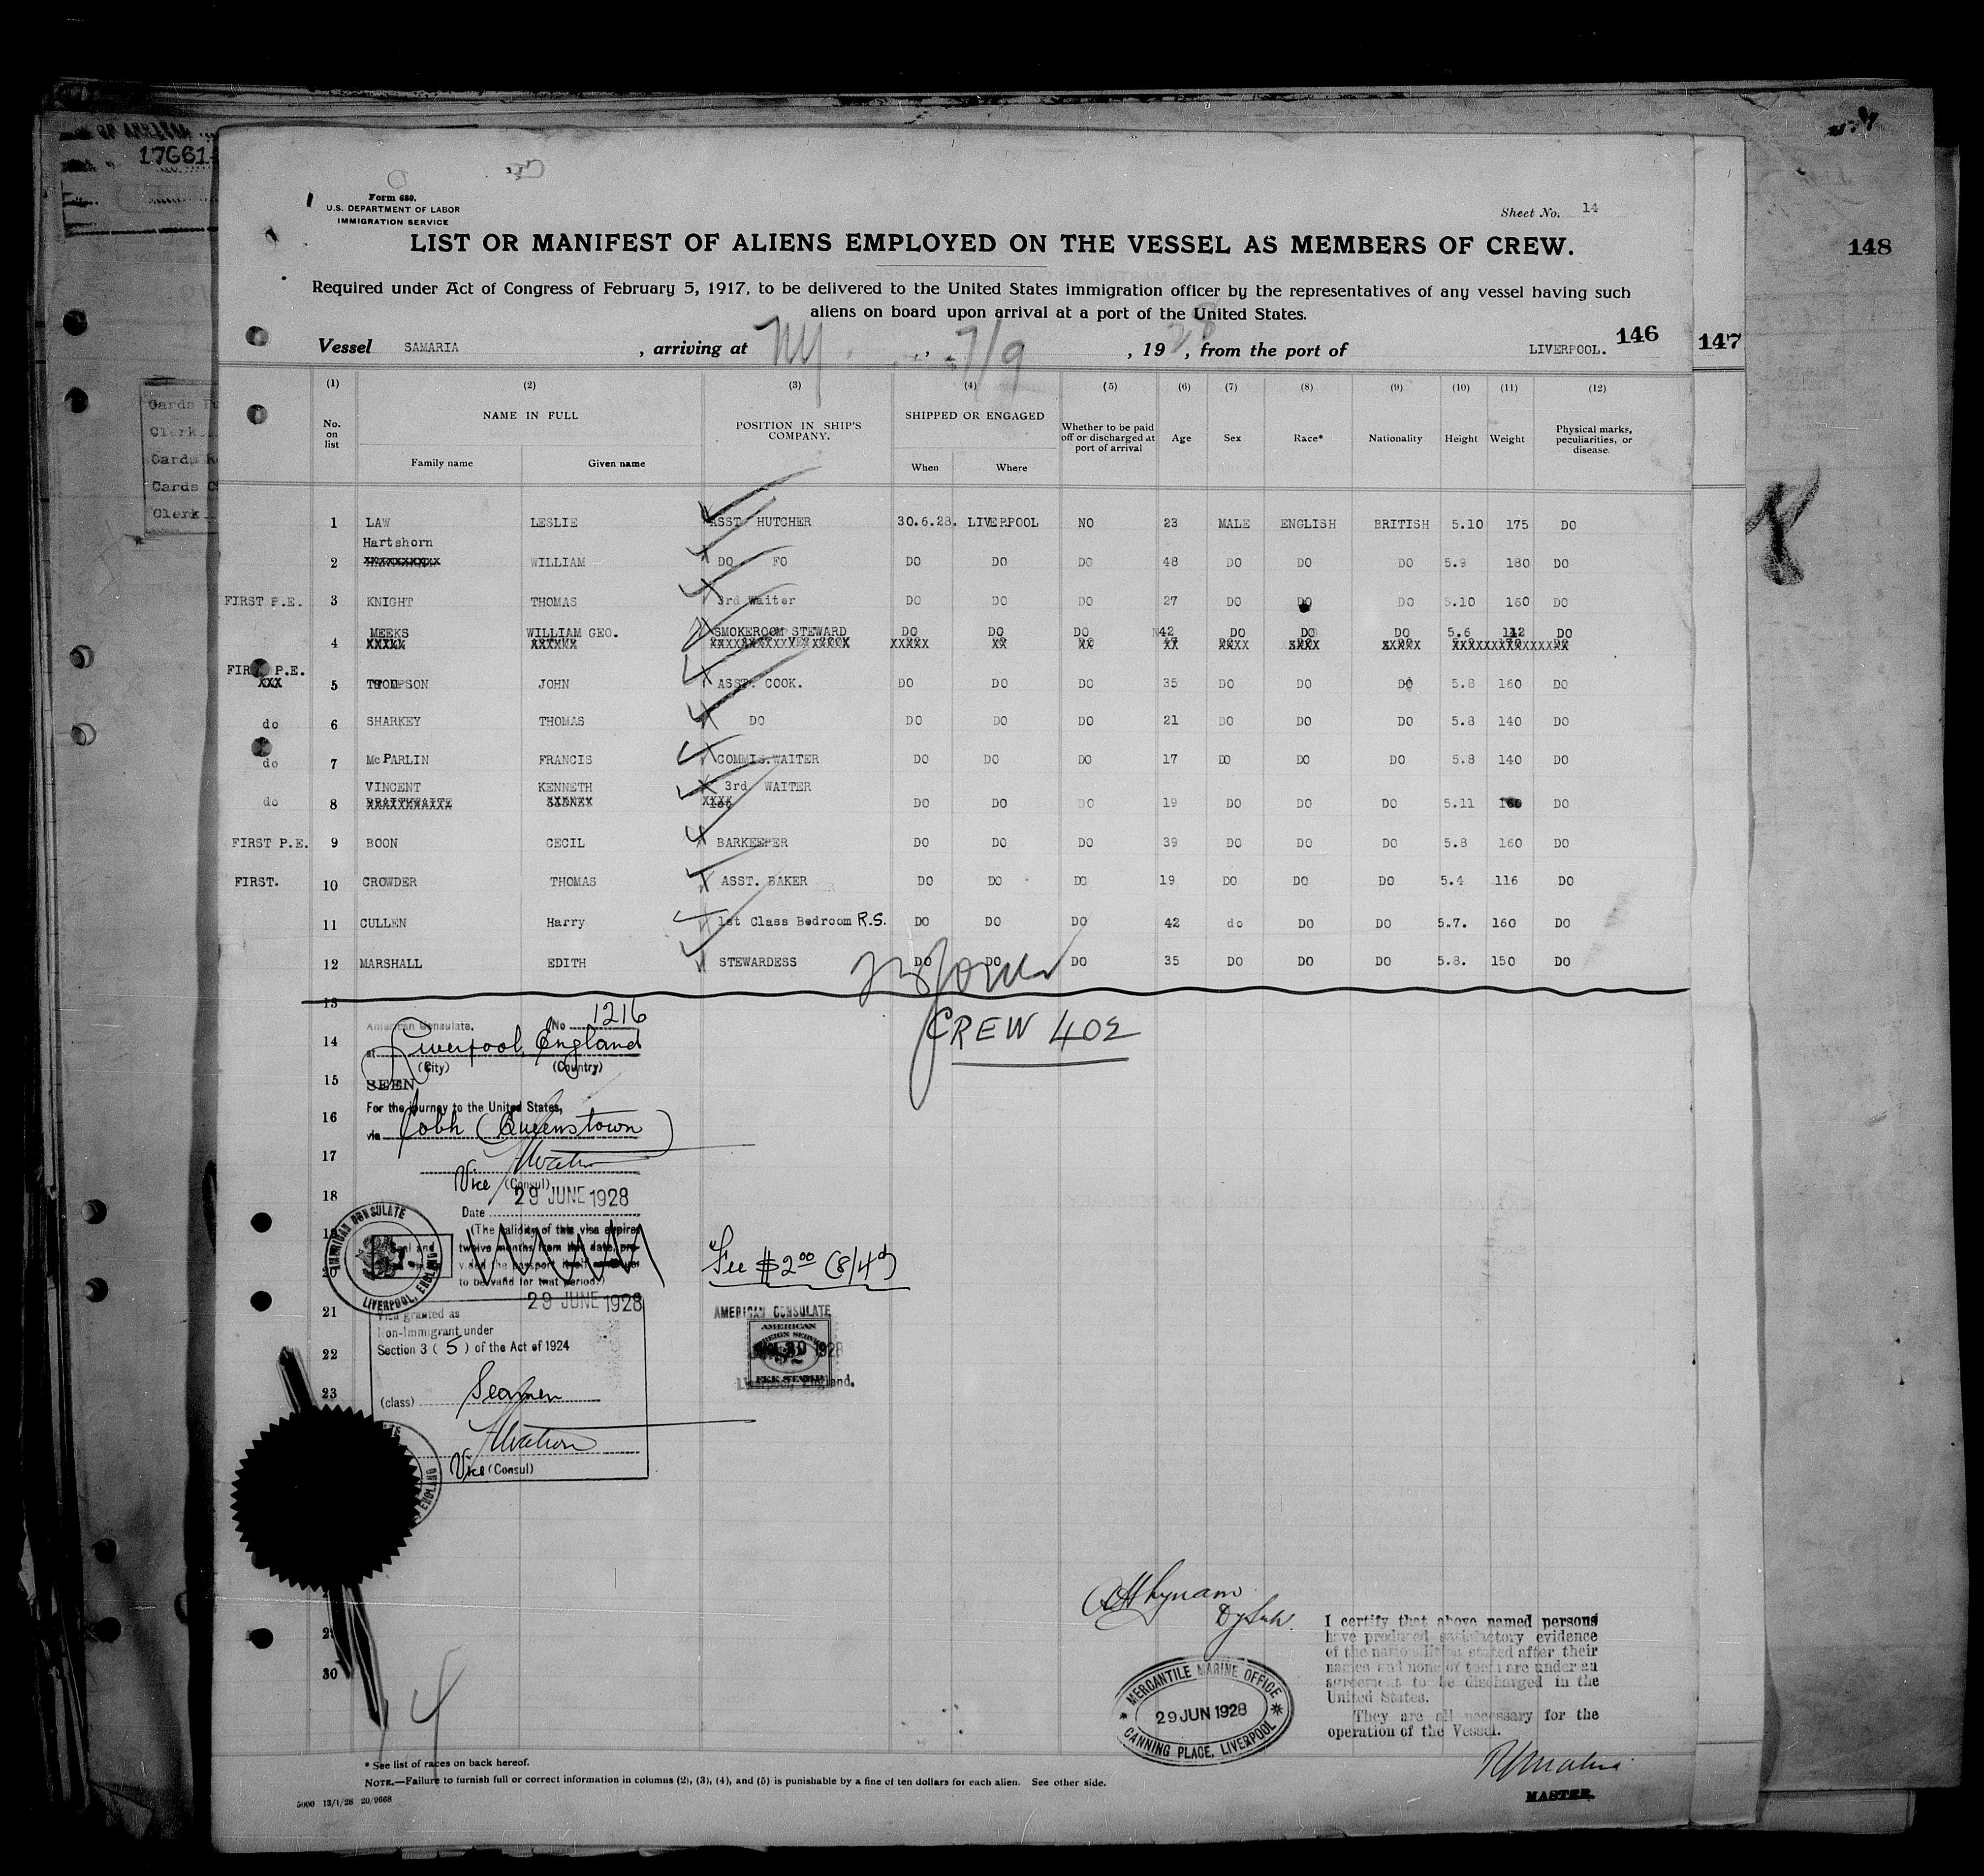 OF ARRIVAL
17661
148
Form 680.
U.S. DEPARTMENT OF LABOR
IMMIGRATION SERVICE
Sheet No. 14
LIST OR MANIFEST OF ALIENS EMPLOYED ON THE VESSEL AS MEMBERS OF CREW.
Required under Act of Congress of February 5, 1917, to be delivered to the United States immigration officer by the representatives of any vessel having such
aliens on board upon arrival at a port of the United States.
146
147
Vessel SAMARIA , arriving at NY , 7/9 , 1928, from the port of LIVERPOOL.
(1) (2) (3) (4) (5) (6) (7) (8) (9) (10) (11) (12)
No. on list NAME IN FULL POSITION IN SHIP'S COMPANY. SHIPPED OR ENGAGED Whether to be paid off or discharged at port of arrival Age Sex Race* Nationality Height Weight Physical marks, peculiarities, or disease.
Family name Given name When Where
Cards
Clerk
Cards
Cards
Clerk
1 LAW LESLIE ASST HUTCHER 30.6.28. LIVERPOOL NO 23 MALE ENGLISH BRITISH 5.10 175 DO
Hartshorn
2 WILLIAM DO FO DO DO DO 48 DO DO DO 5.9 180 DO
FIRST P.E. 3 KNIGHT THOMAS 3rd Waiter DO DO DO 27 DO DO DO 5.10 160 DO
MEEKS WILLIAM GEO. SMOKEROOM STEWARD DO DO DO 42 DO DO DO 5.6 112 DO
4 XXXXX XXXXXX XXXXX XX XX XX XXXX XXXX XXXXX
FIRST P.E.
XXX 5 THOMPSON JOHN ASST. COOK. DO DO DO 35 DO DO DO 5.8 160 DO
do 6 SHARKEY THOMAS DO DO DO DO 21 DO DO DO 5.8 140 DO
do 7 McPARLIN FRANCIS COMMIS.WAITER DO DO DO 17 DO DO DO 5.8 140 DO
VINCENT KENNETH 3rd WAITER
do 8 BRAITHWAITE SIDNEY XXXX DO DO DO 19 DO DO DO 5.11 160 DO
FIRST P.E. 9 BOON CECIL BARKEEPER DO DO DO 39 DO DO DO 5.8 160 DO
FIRST. 10 CROWDER THOMAS ASST. BAKER DO DO DO 19 DO DO DO 5.4 116 DO
11 CULLEN Harry 1st Class Bedroom R.S. DO DO DO 42 do DO DO 5.7. 160 DO
12 MARSHALL EDITH STEWARDESS DO DO DO 35 DO DO DO 5.8. 150 DO
13
American Consulate, No 1216
14 at Liverpool, England
CREW 402
(City) (Country)
15 SEEN
For the journey to the United States,
16 via Cobh (Queenstown)
17
Vice (Consul)
18 29 JUNE 1928
Date
19 (The validity of this visa expires
twelve months from this date, pro-
vided the passport
20 to be valid for that period.)
Seal and
AMERICAN CONSULATE
LIVERPOOL, ENGLAND
Fee $2.00 (8/4d)
29 JUNE 1928
21 Visa granted as
Non-Immigrant under
22 Section 3 (5) of the Act of 1924
23 (class) Seamen
Vice (Consul)
AMERICAN CONSULATE
AMERICAN
FOREIGN SERVICE
1928
FEE STAMP
Liverpool, England.
30
4
Dy Supt.
MERCANTILE MARINE OFFICE
29 JUN 1928
CANNING PLACE, LIVERPOOL
I certify that above named persons
have produced satisfactory evidence
of the nationalities stated after their
names and none of them are under an
agreement to be discharged in the
United States.
They are all necessary for the
operation of the Vessel.
MASTER.
* See list of races on back hereof.
NOTE.—Failure to furnish full or correct information in columns (2), (3), (4), and (5) is punishable by a fine of ten dollars for each alien. See other side.
5000 12/1/28 20/9668